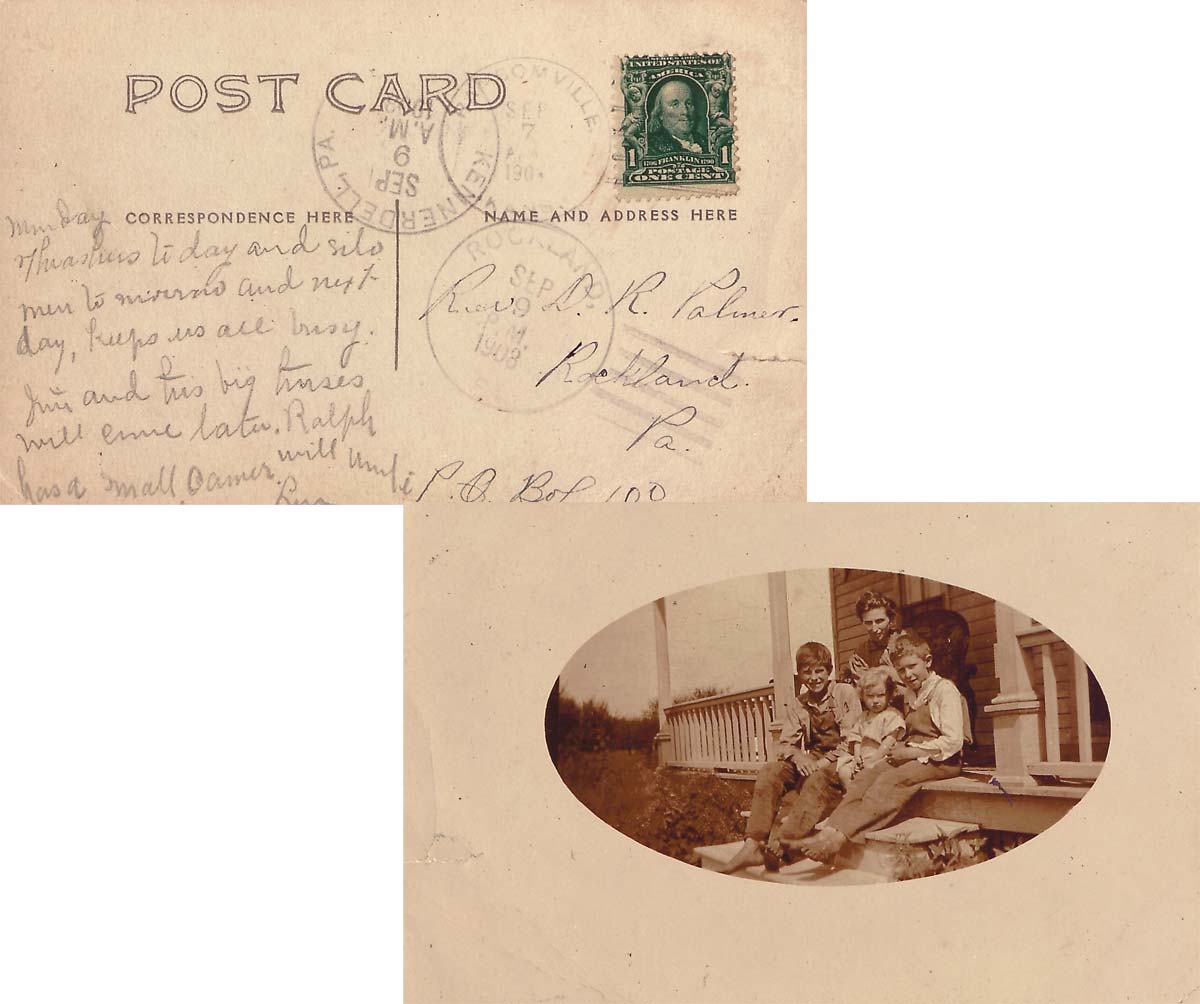 POST CARD
SERIES 1902
UNITED STATES OF
AMERICA
1 1706 FRANKLIN 1790 1
POSTAGE
ONE CENT
SEP
7
190
KENNERDELL, PA.
SEP
9
A.M.
CORRESPONDENCE HERE
NAME AND ADDRESS HERE
ROCKLAND,
SEP
9
P.M.
1908
Monday
Thrashers to day and silo
men to morrow and next
day, keeps us all busy.
Jim and his big horses
will come later. Ralph
has a small Camer will
Rev. D. R. Palmer.
Rockland.
Pa.
P.O. Box 100